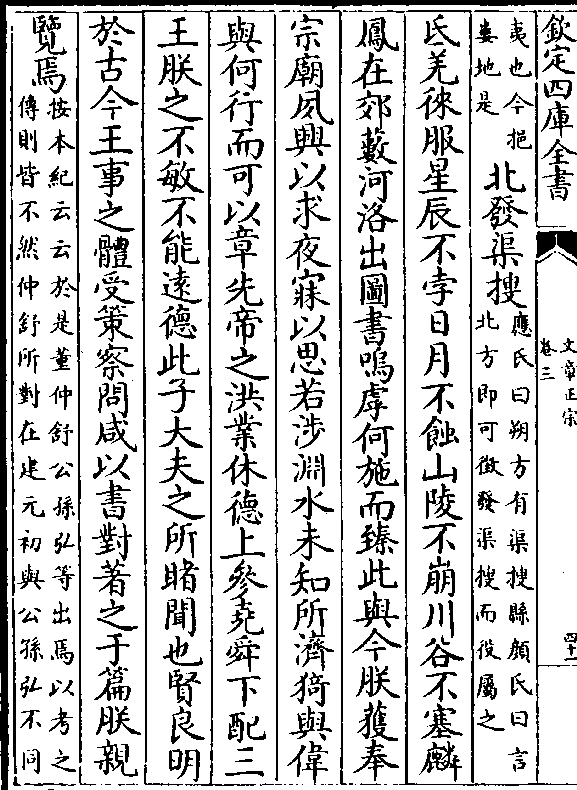 欽定四庫全書
文章正宗
卷三
四十一
夷也今挹
婁地是
北發渠搜
應氏曰朔方有渠搜縣顔氏曰言
北方即可徴發渠搜而役屬之
氐羌徠服星辰不孛日月不蝕山陵不崩川谷不塞麟
鳳在郊藪河洛出圖書嗚虖何施而臻此與今朕獲奉
宗廟夙興以求夜寐以思若涉淵水未知所濟猗與偉
與何行而可以章先帝之洪業休德上參堯舜下配三
王朕之不敏不能逺德此子大夫之所睹聞也賢良明
於古今王事之體受策察問咸以書對著之于篇朕親
覽焉
按本紀云云於是董仲舒公孫弘等出焉以考之
傳則皆不然仲舒所對在建元初與公孫弘不同